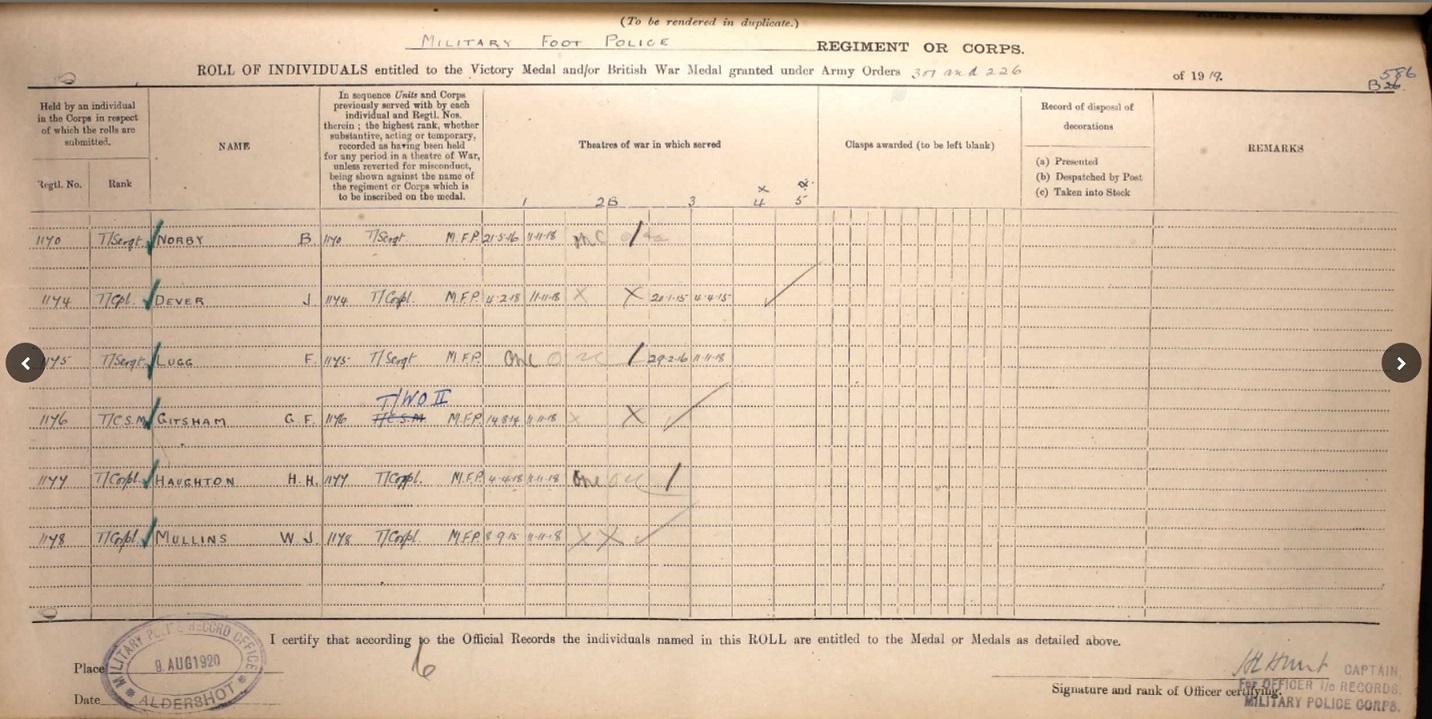 (To be rendered in duplicate.)
MILITARY FOOT POLICE REGIMENT OR CORPS.
ROLL OF INDIVIDUALS entitled to the Victory Medal and/or British War Medal granted under Army Orders 301 and 226 of 1919.
586
B26
Held by an individual in the Corps in respect of which the rolls are submitted.
Regtl. No.
Rank
NAME
In sequence Units and Corps previously served with by each individual and Regtl. Nos. therein; the highest rank, whether substantive, acting or temporary, recorded as having been held for any period in a theatre of War, unless reverted for misconduct, being shown against the name of the regiment or Corps which is to be inscribed on the medal.
Theatres of war in which served
1 2B 3 4 5
Clasps awarded (to be left blank)
Record of disposal of decorations
(a) Presented
(b) Despatched by Post
(c) Taken into Stock
REMARKS
1170 T/Sergt. NORBY B. 1170 T/Sergt M.F.P 21-5-16 11-11-18
1174 T/Cpl. DEVER J 1174 T/Corpl. M.F.P. 4-2-18 11-11-18 X X 20-1-15 4-4-15
1175 T/Sergt. LUGG F. 1175 T/Sergt M.F.P. one 29-2-16 11-11-18
1176 T/C.S.M. GITSHAM G. F. 1176 T/C.S.M. T/WO II M.F.P. 14-8-14 11-11-18 X X
1177 T/Corpl. HAUGHTON H. H. 1177 T/Corpl. M.F.P. 4-4-18 11-11-18 one
1178 T/Corpl. MULLINS W J. 1178 T/Corpl. M.F.P. 8-9-15 11-11-18 X X
I certify that according to the Official Records the individuals named in this ROLL are entitled to the Medal or Medals as detailed above.
6
Place
Date
MILITARY POLICE RECORD OFFICE
9 AUG 1920
ALDERSHOT
CAPTAIN,
For OFFICER I/c RECORDS,
MILITARY POLICE CORPS.
Signature and rank of Officer certifying.